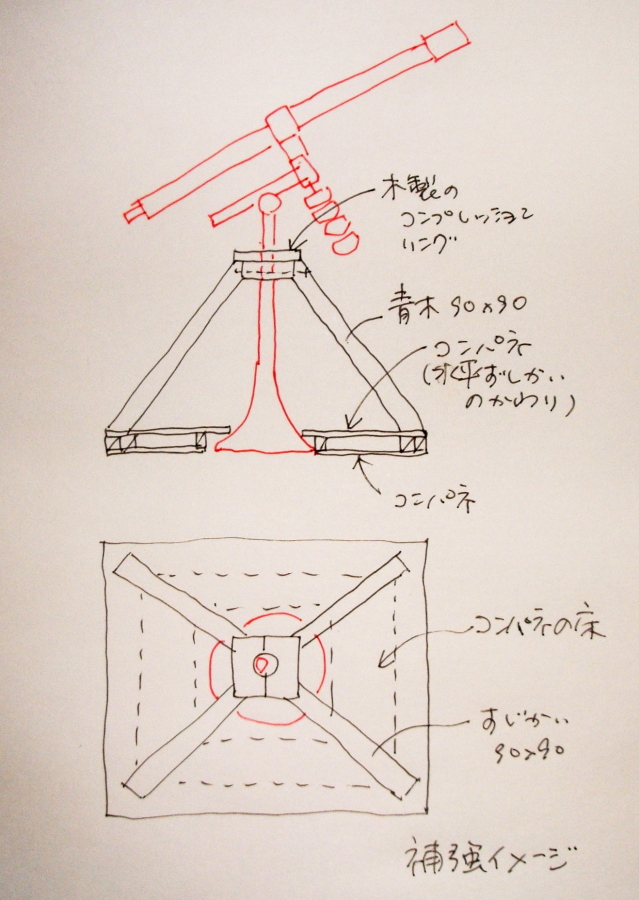 木製の
コンプレッション
リング
青木 90x90
コンパネ
(水平すじかい
のかわり)
コンパネ
コンパネの床
すじかい
90x90
補強イメージ